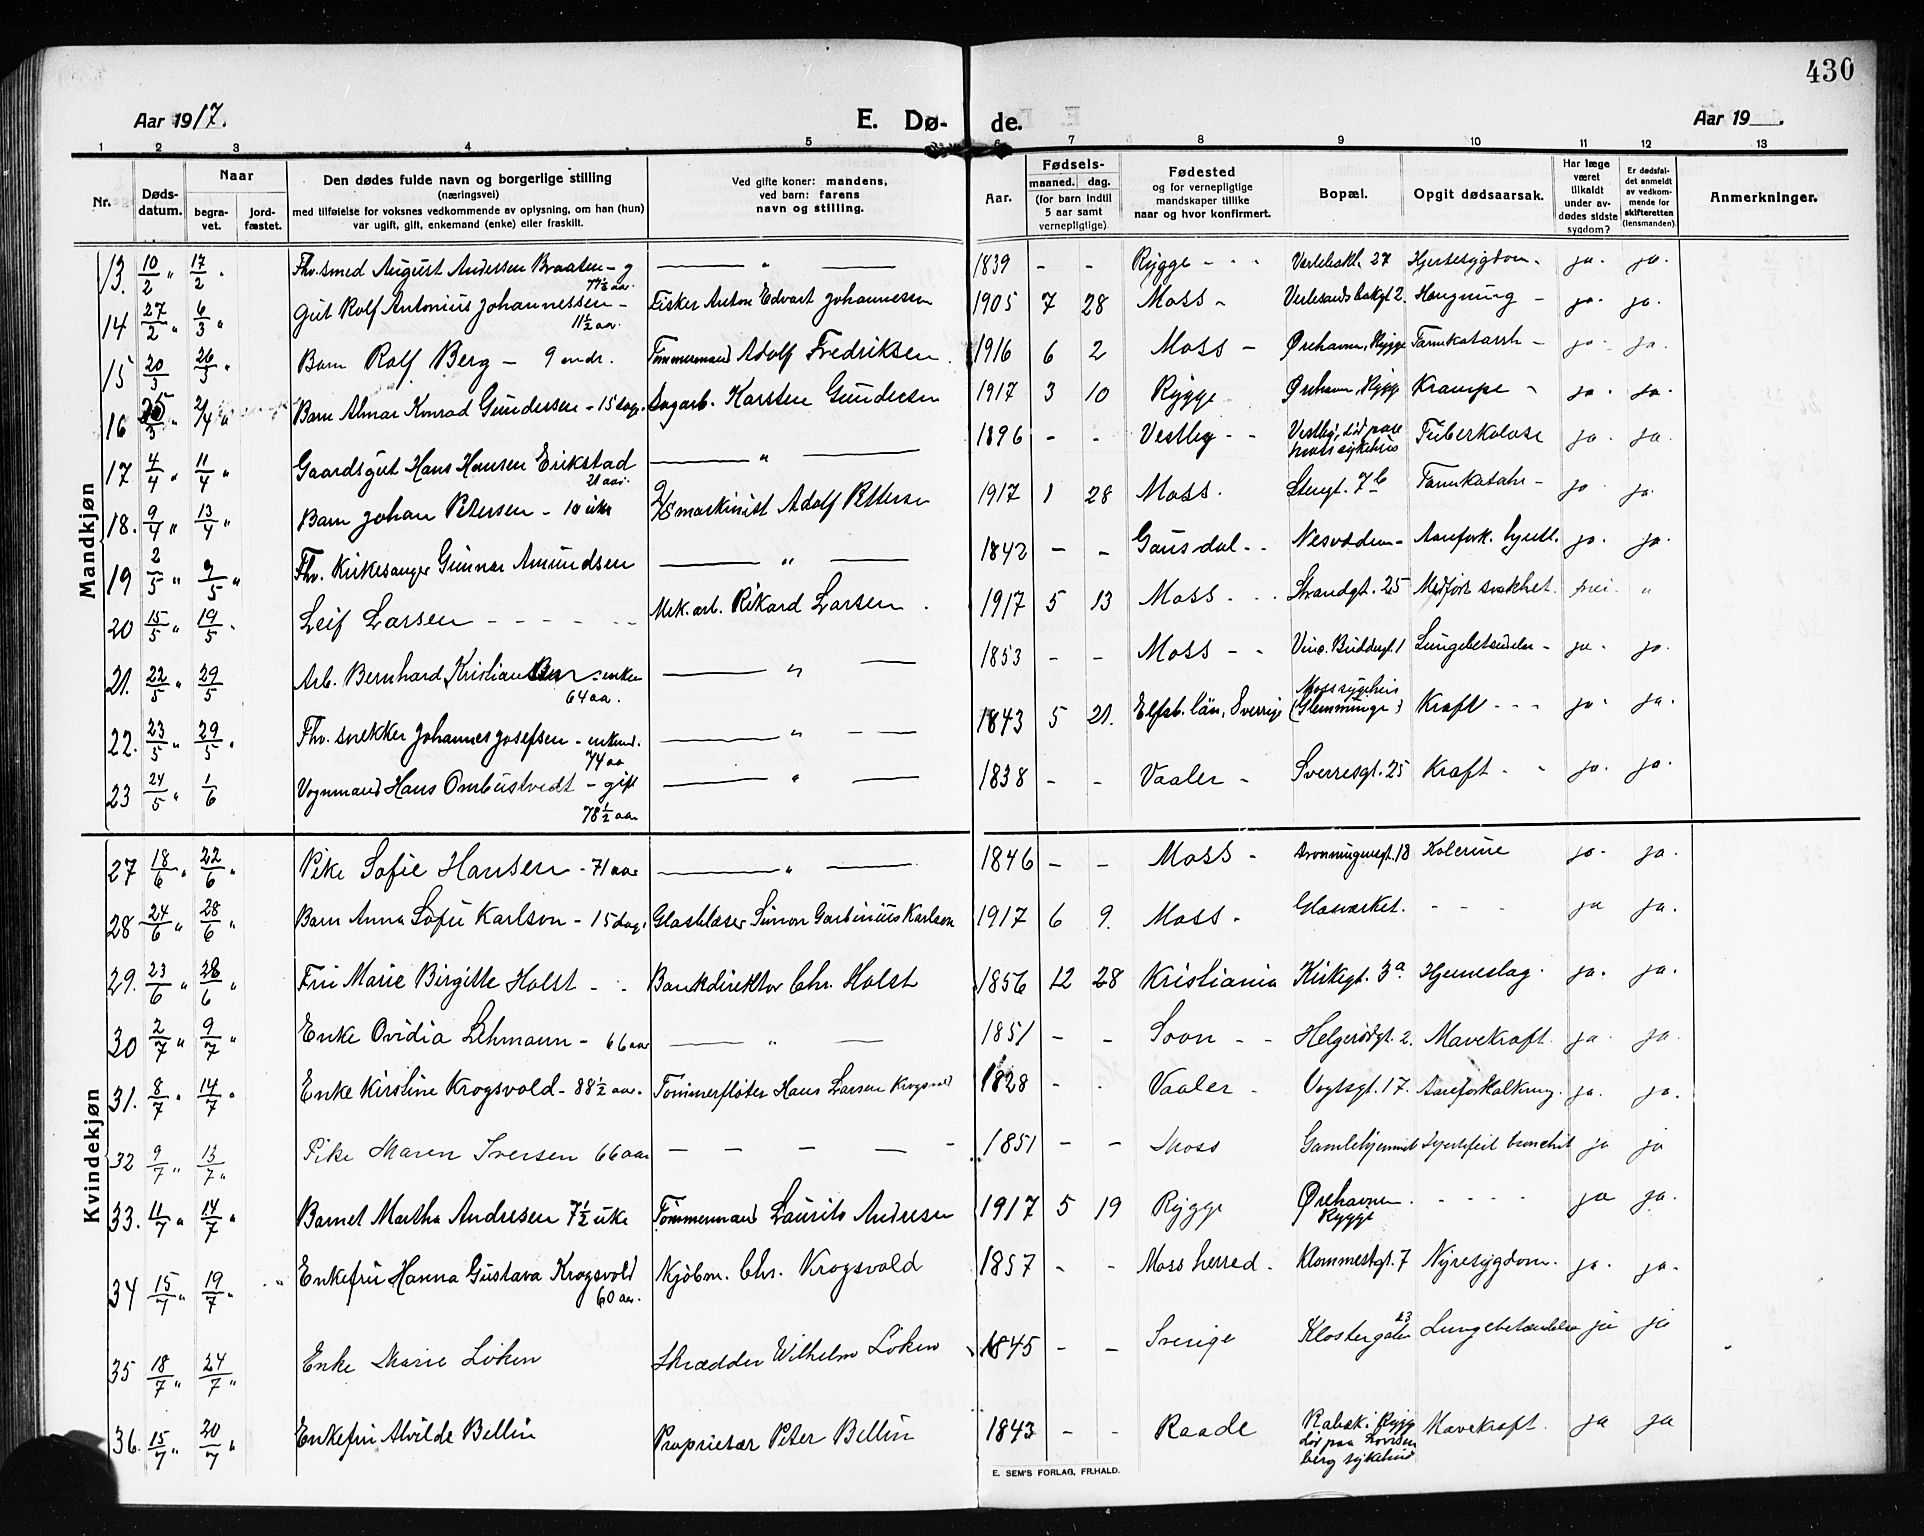 430
Aar 1917.
E. Dø-
de.
Aar 19 .
1 2 3 4 5 6 7 8 9 10 11 12 13
Nr.
Døds-
datum.
Naar
begra-
vet.
jord-
fæstet.
Den dødes fulde navn og borgerlige stilling
(næringsvei)
med tilføielse for voksnes vedkommende av oplysning, om han (hun)
var ugift, gift, enkemand (enke) eller fraskilt.
Ved gifte koner: mandens,
ved barn: farens
navn og stilling.
Aar.
Fødsels-
maaned. dag.
(for barn indtil
5 aar samt
vernepligtige)
Fødested
og for vernepligtige
mandskaper tillike
naar og hvor konfirmert.
Bopæl.
Opgit dødsaarsak.
Har læge
været
tilkaldt
under av-
dødes sidste
sygdom?
Er dødsfal-
det anmeldt
av vedkom-
mende for
skifteretten
(lensmanden).
Anmerkninger.
Mandkjøn
13. 10/2 " 17/2 " Fhv. smed August Andersen Braaten - g — " — 1839 - - Rygge - - 27 Hjertesygdom - ja. ja.
77½ aar.
14 27/2 " 6/3 " Gut Rolf Antonius Johannessen - Fisker Anton Edvart Johannessen 1905 7 28 Moss - 2. Hængning - ja. ja.
11½ aar.
15 20/3 26/3 " Barn Rolf Berg - 9 mdr. Tømmermand Adolf Fredriksen. 1916 6 2 Moss - Ørehavn, Rygge Tarmkatarrh - ja. ja.
16 25/3 " 2/4 " Barn Almar Konrad Gundersen - 15 dag. Dagarb. Karsten Gundersen 1917 3 10 Rygge Ørehavn, Rygge Krampe - ja. ja.
17 4/4 " 11/4 " Gaardsgut Hans Hansen Erikstad — " — 1896 - - Vestby - - Vestby, død paa Tuberkulose ja. ja.
21 aar. Moss sykehus
18. 9/4 " 13/4 " Barn Johan Petersen - 10 uker D/S maskinist Adolf Petersen 1917 1 28 Moss. Storgt. 7b Tarmkatarr - ja ja.
19 2/5 " 9/5 " Fhv. Kirkesanger Gunnar Amundsen — " — 1842 - - Gausdal - - Aareforkalkn. ja. ja.
20 15/5 " 19/5 " Leif Larsen - - - - - Mek. arb. Rikard Larsen. 1917 5 13 Moss. - Strandgt. 25 Medfødt svakhet. nei. "
21. 22/5 " 29/5 Arb. Bernhard Kristiansen - enkem — " — 1853 - - Moss - - 1 Lungebetændelse - ja. ja.
64 aar.
22. 23/5 " 29/5 " Fhv. snekker Johannes Josefsen - enkem. — " - - 1843 5 21. Elfsb. län, Sverrige Moss sygehus (Glemminge) Kræft - - - ja. ja.
74 aar
23 24/5 " 1/6 Vognmand Hans Ombustvedt - gift — " — 1838 - - Vaaler - Sverresgt. 25 Kræft - - ja. ja.
78½ aar
Kvindekjøn
27 18/6 " 22/6 " Pike Sofie Hansen - 71 aar — " — 1846 - - Moss - Dronningensgt. 18 Kolerine ja. ja.
28 24/6 " 28/6 " Barn Anna Sofie Karlson - 15 dag. Glasblæser Simon Garbinius Karlson 1917 6 9. Moss - Glasværket. - - - ja ja.
29. 23/6 " 28/6 " Fru Marie Birgitte Holst - - Bankdirektør Chr. Holst 1856 12 28 Kristiania Kirkegt. 3a Hjerneslag. ja. ja.
30 2/7 " 9/7 " Enke Ovidia Lehmann - 66 aar — " — 1851 - - Soon - - Helgerødgt. 2. Mavekræft. ja. ja.
31. 8/7 " 14/7 " Enke Kirstine Krogsvold - 88½ aar. Tømmerfløter Hans Larsen Krogsvold 1828 - - Vaaler - Vogtsgt. 17. Aareforkalkning. ja. ja.
32 9/7 " 13/7 " Pike Maren Iversen 66 aar - - - - - 1851 - - Moss Gamlehjemmet Hjertefeil bronchit ja ja
33. 11/7 " 14/7 " Barnet Martha Andresen 7½ uke Tømmermand Laurits Andresen 1917 5 19 Rygge Ørehavnen. - - - - ja ja.
Rygge
34 15/7 " 19/7 " Enkefru Hanna Gustava Krogsvold Kjøbm. Chr. Krogsvold 1857 - - Moss herred - 7 Nyresygdom. ja. ja.
60 aar.
35 18/7 " 24/7 " Enke Marie Løken Skrædder Wilhelm Löken 1845 - - Sverige Klostergaten 23 Lungebetændelse ja ja
36. 15/7 " 20/7 " Enkefru Alvilde Bellin Proprietær Peter Bellin 1843 - - Raade i Rygge Mavekræft. ja ja
død paa Lovisen
berg sykehus
E. SEM'S FORLAG, FR.HALD.